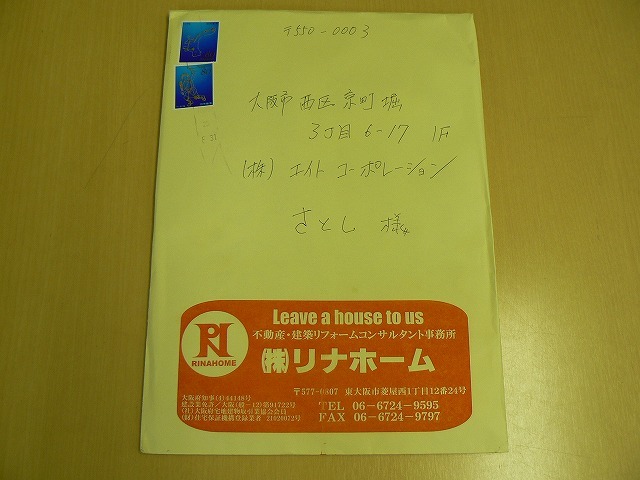 〒550-0003
大阪市西区京町堀
3丁目6-17 1F
(株)エイトコーポレーション
さとし様
Leave a house to us
不動産・建築リフォームコンサルタント事務所
RINAHOME
(株)リナホーム
〒577-0807 東大阪市菱屋西1丁目12番24号
TEL 06-6724-9595
FAX 06-6724-9797
大阪府知事(4)44148号
建設業免許/大阪(般-12)第91722号
(社)大阪府宅地建物取引業協会会員
(財)住宅保証機構登録業者 21020072号